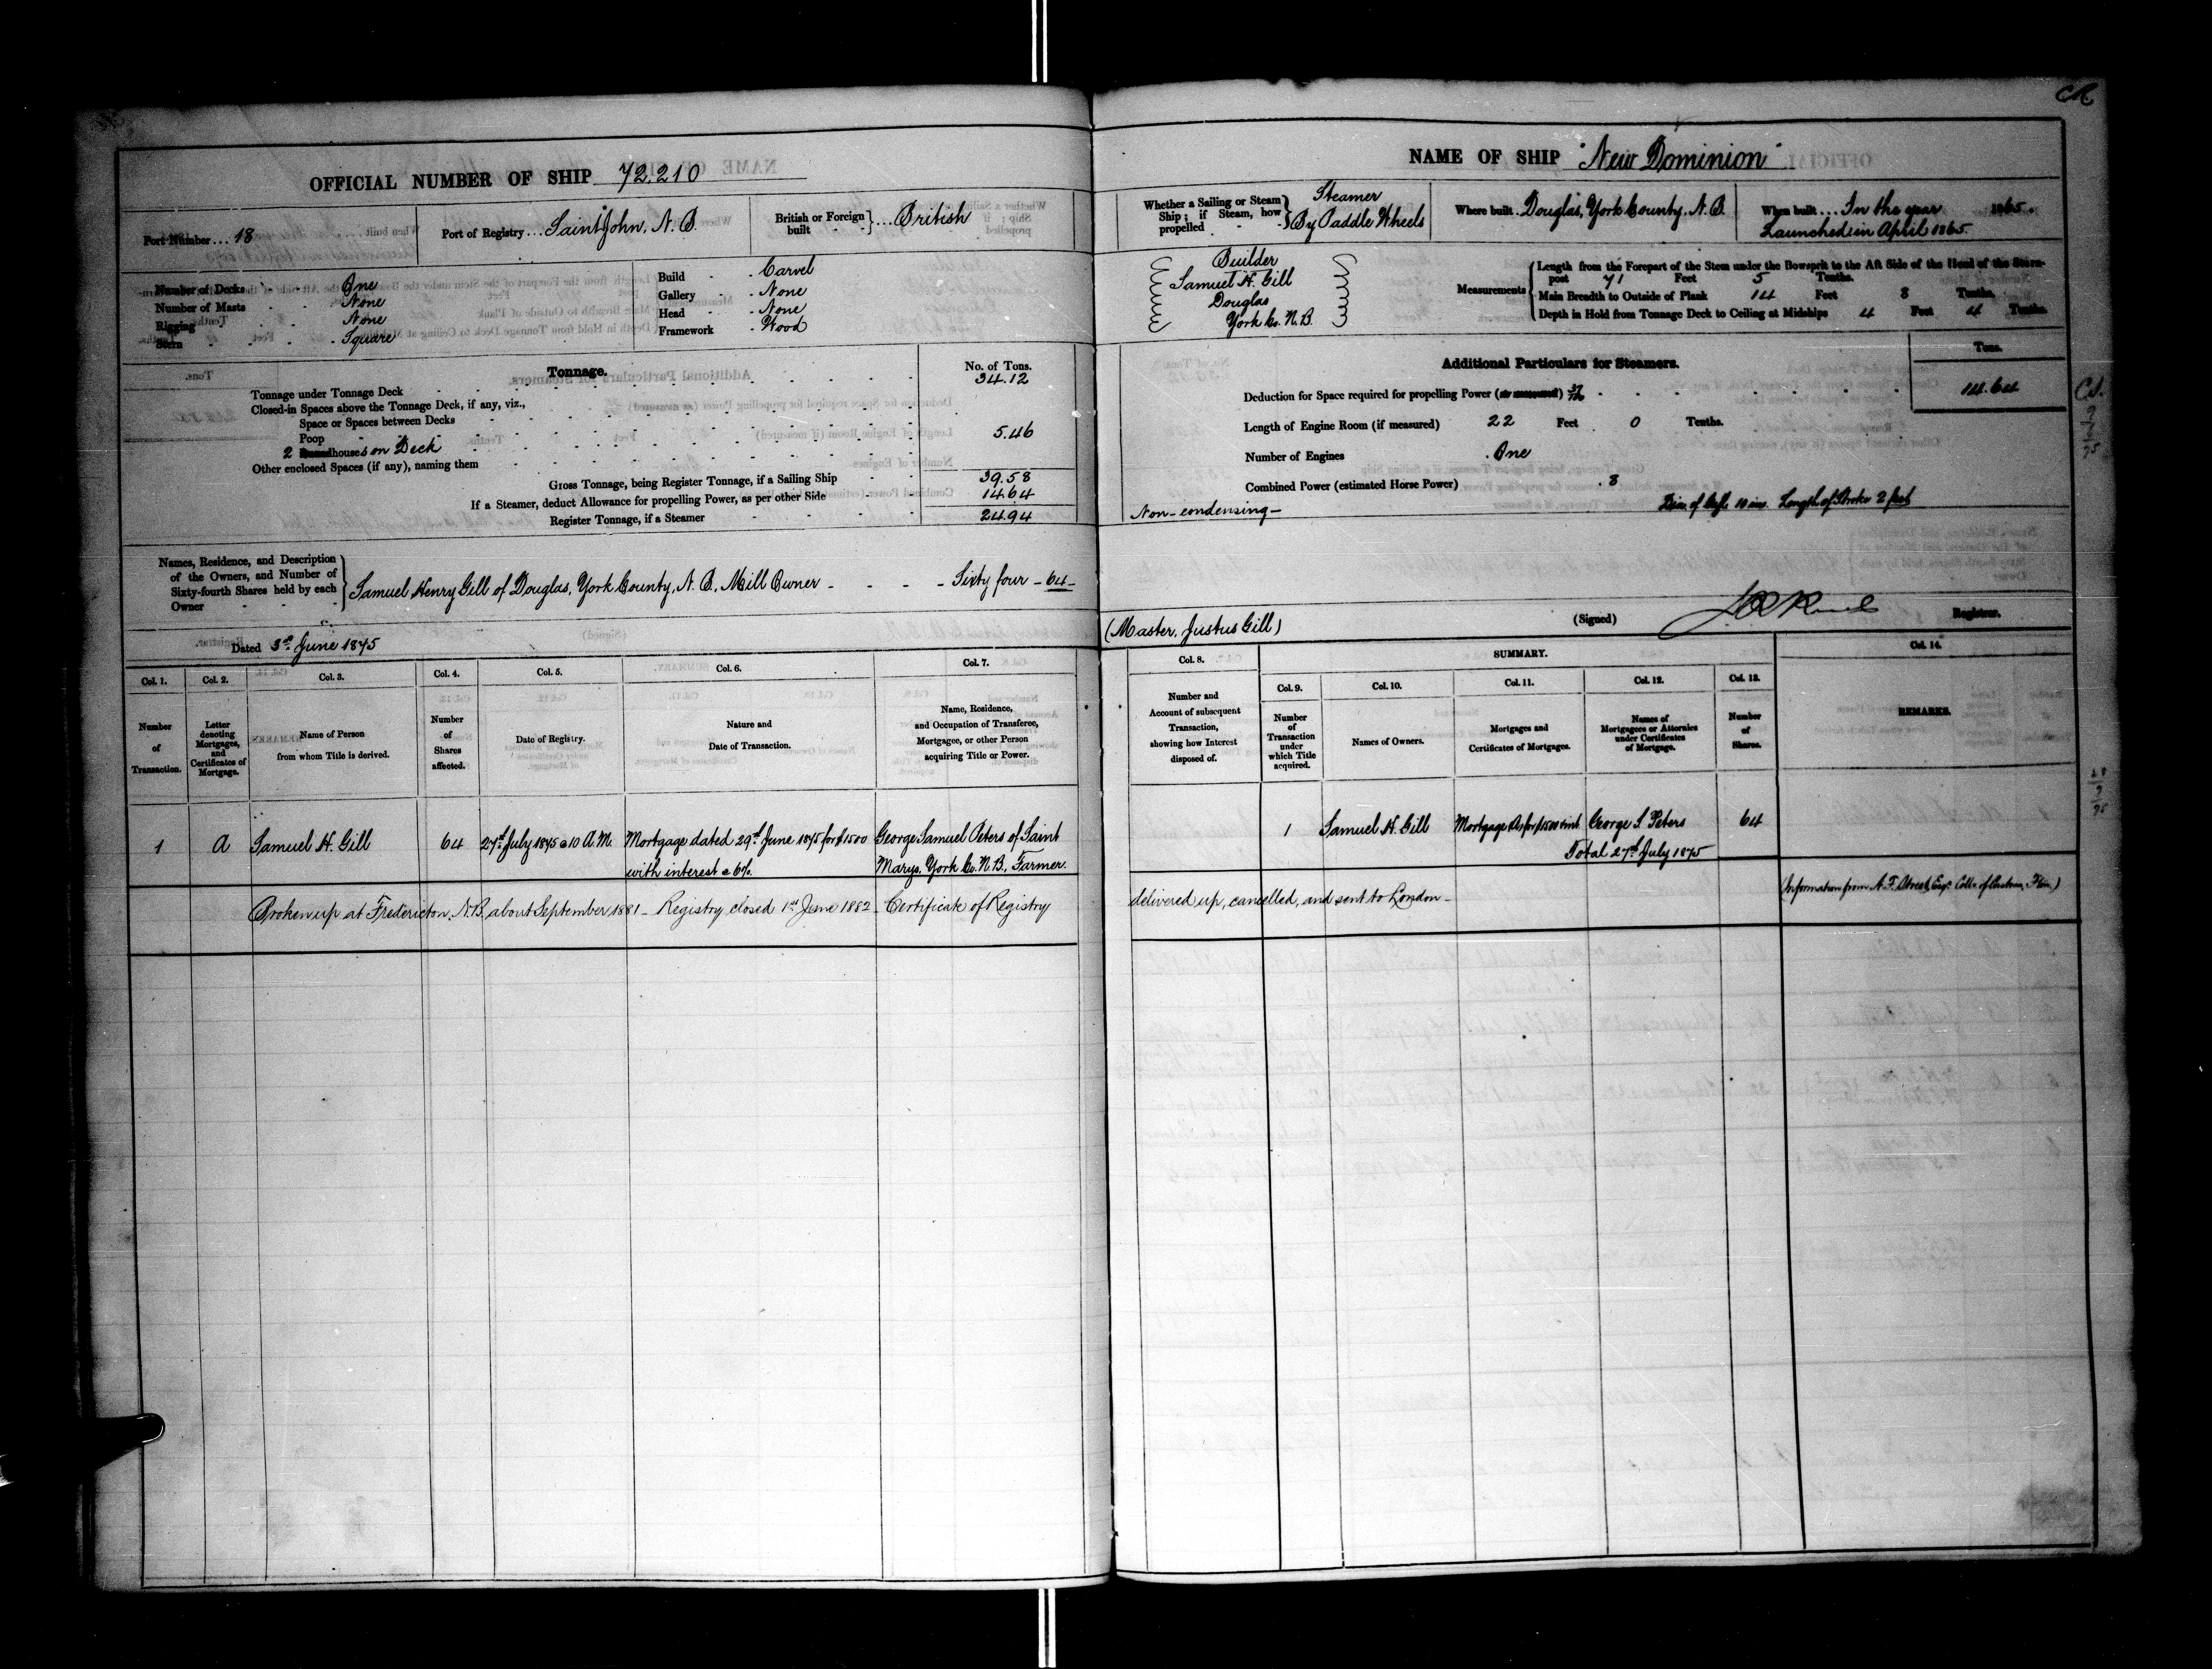 OFFICIAL NUMBER OF SHIP 72.210
Port Number ... 18
Port of Registry ... Saint John, N.B.
British or Foreign built } ... British
Number of Decks One
Number of Masts None
Rigging None
Stern Square
Build Carvel
Gallery None
Head None
Framework Wood
Tonnage.
No. of Tons.
Tonnage under Tonnage Deck 34.12
Closed-in Spaces above the Tonnage Deck, if any, viz.,
Space or Spaces between Decks
Poop
2 houses on Deck 5.46
Other enclosed Spaces (if any), naming them
Gross Tonnage, being Register Tonnage, if a Sailing Ship 39.58
If a Steamer, deduct Allowance for propelling Power, as per other Side 14.64
Register Tonnage, if a Steamer 24.94
Names, Residence, and Description
of the Owners, and Number of
Sixty-fourth Shares held by each
Owner
Samuel Henry Gill of Douglas, York County, N.B., Mill Owner - - - - Sixty four - 64 -
Dated 3rd June 1875
Col. 1.
Number
of
Transaction.
Col. 2.
Letter
denoting
Mortgages,
and
Certificates of
Mortgage.
Col. 3.
Name of Person
from whom Title is derived.
Col. 4.
Number
of
Shares
affected.
Col. 5.
Date of Registry.
Col. 6.
Nature and
Date of Transaction.
Col. 7.
Name, Residence,
and Occupation of Transferee,
Mortgagee, or other Person
acquiring Title or Power.
1 A Samuel H. Gill 64 27th July 1875 @ 10 A.M. Mortgage dated 29th June 1875 for $1500 George Samuel Peters of Saint
with interest @ 6%. Marys, York Co. N.B., Farmer.
Broken up at Fredericton, N.B. about September 1881 - Registry closed 1st June 1882 - Certificate of Registry
NAME OF SHIP "New Dominion"
Whether a Sailing or Steam
Ship; if Steam, how
propelled
Steamer
By Paddle Wheels
Where built Douglas, York County, N.B.
When built ... In the year 1865.
Launched in April 1865.
Builder
Samuel H. Gill
Douglas
York Co. N.B.
Measurements
Length from the Forepart of the Stem under the Bowsprit to the Aft Side of the Head of the Stern-
post 71 Feet 5 Tenths.
Main Breadth to Outside of Plank 14 Feet 8 Tenths.
Depth in Hold from Tonnage Deck to Ceiling at Midships 4 Feet 4 Tenths.
Additional Particulars for Steamers.
Tons.
Deduction for Space required for propelling Power 14.64
Length of Engine Room (if measured) 22 Feet 0 Tenths.
Number of Engines One
Combined Power (estimated Horse Power) 8
Non-condensing - Diam of Cyl. 10 ins. Length of Stroke 2 feet
(Master, Justus Gill)
(Signed) Registrar.
Col. 8.
Number and
Account of subsequent
Transaction,
showing how Interest
disposed of.
SUMMARY.
Col. 9.
Number
of
Transaction
under
which Title
acquired.
Col. 10.
Names of Owners.
Col. 11.
Mortgages and
Certificates of Mortgages.
Col. 12.
Names of
Mortgagees or Attornies
under Certificates
of Mortgage.
Col. 13.
Number
of
Shares.
Col. 14.
REMARKS.
1 Samuel H. Gill Mortgage A, for $1500 & int George S. Peters 64
Total 27th July 1875
delivered up, cancelled, and sent to London -
(Information from A.F. Street, Esq. Collr of Customs, Fton.)